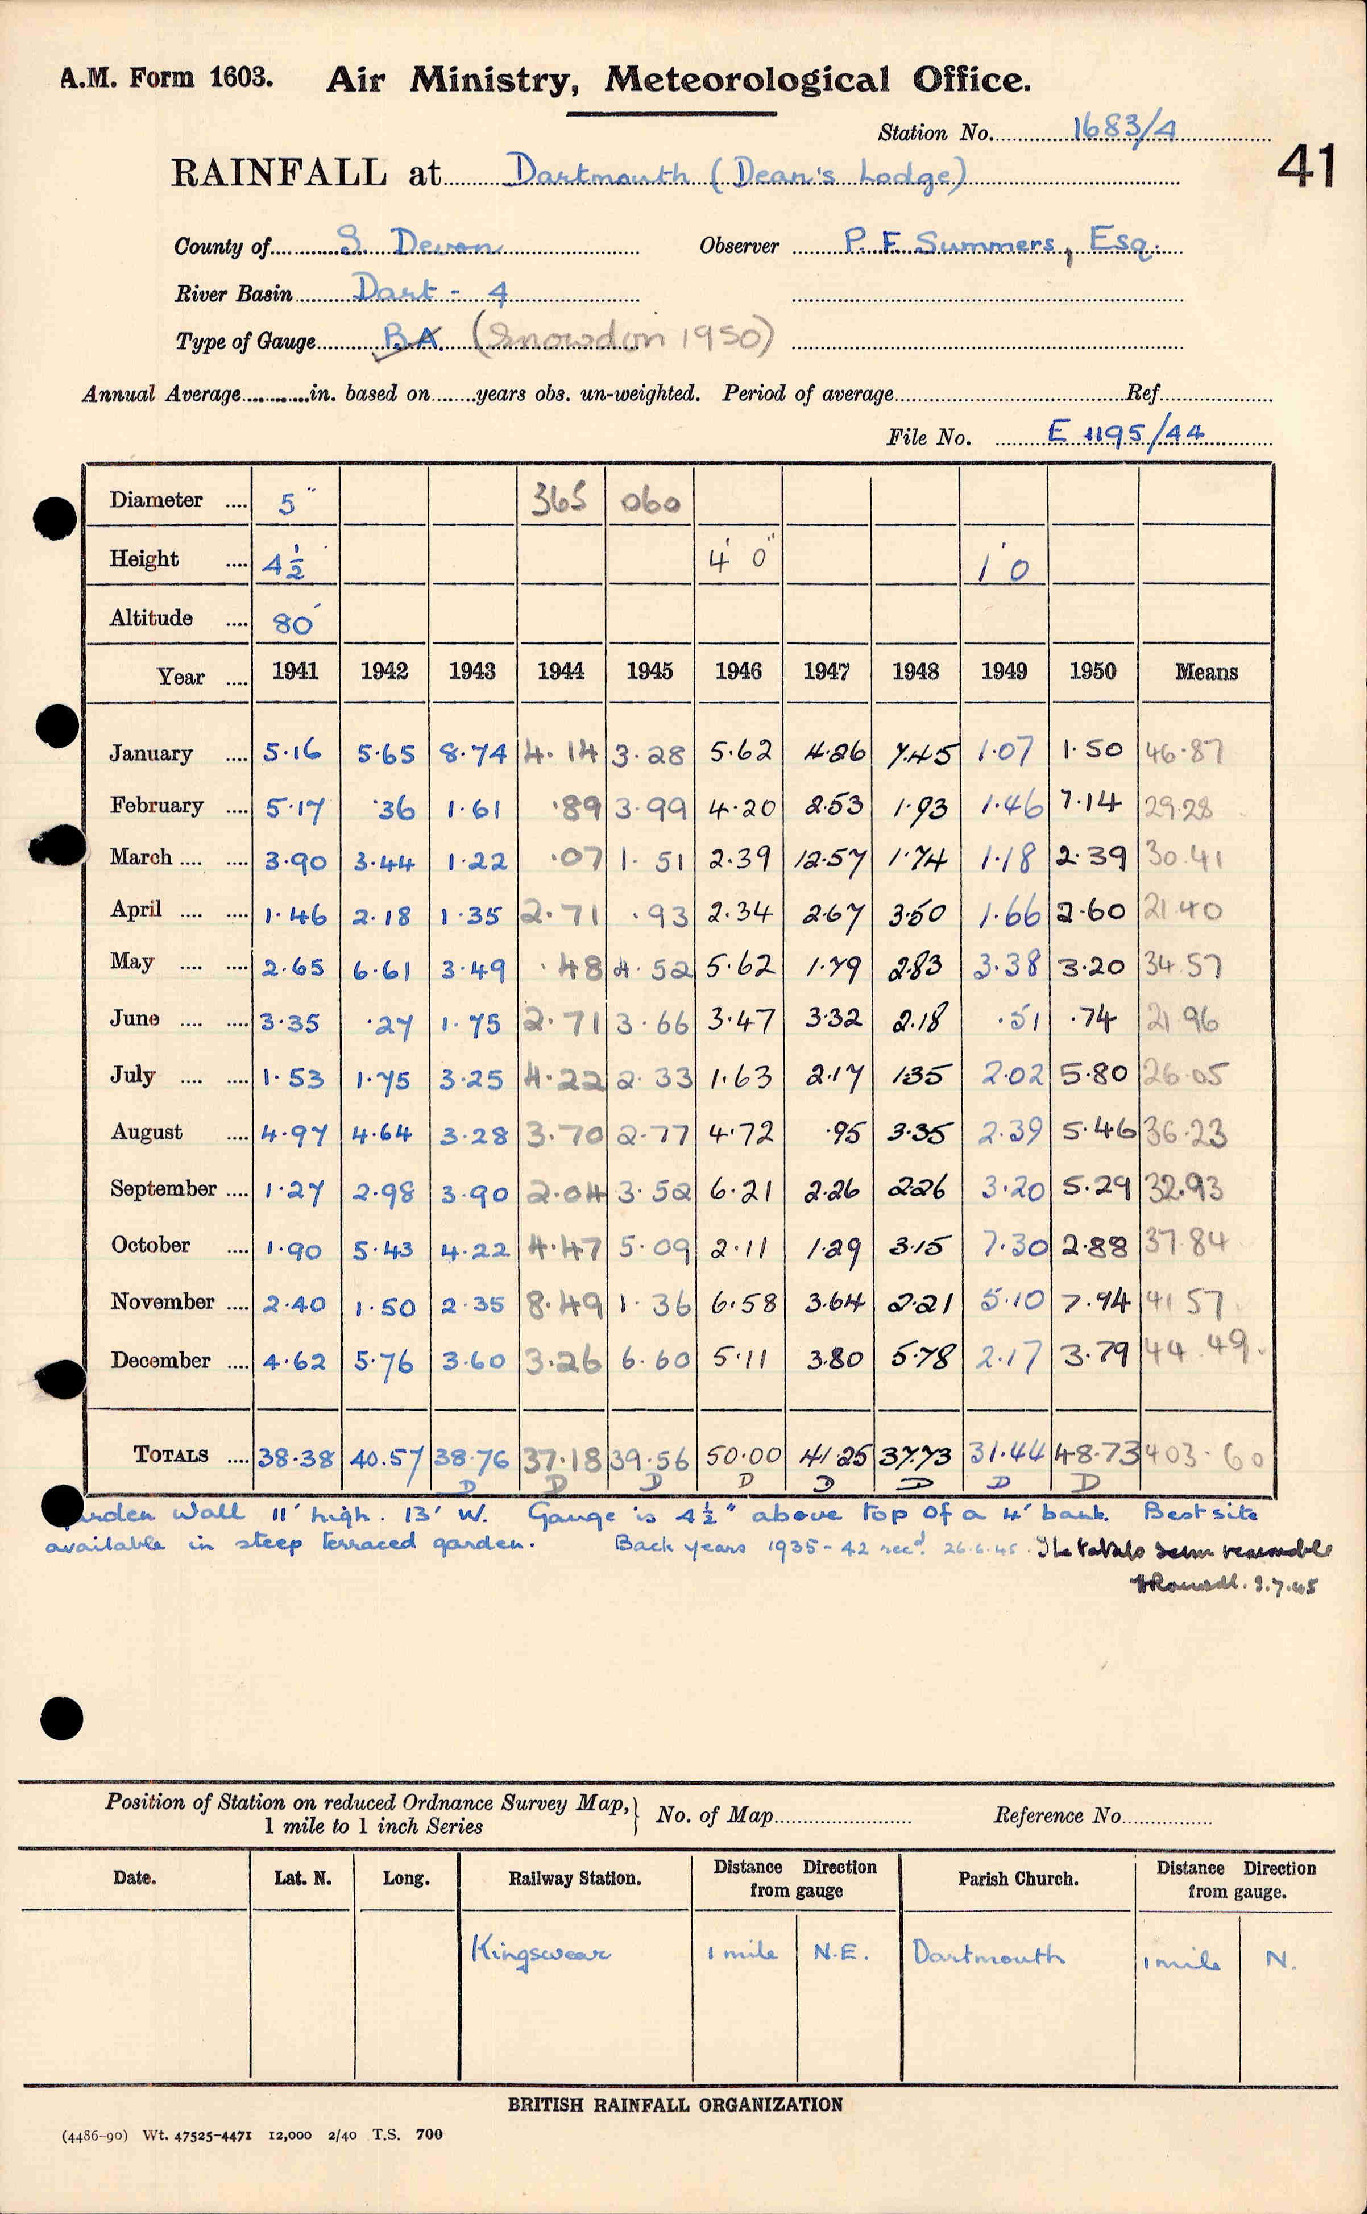 A.M. Form 1603. Air Ministry, Meteorological Office.
Station No. 1683/4
41
RAINFALL at Dartmouth (Dean's Lodge)
County of S. Devon Observer P. F. Summers, Esq.
River Basin Dart - 4
Type of Gauge B.A. (Snowdon 1950)
Annual Average in. based on years obs. un-weighted. Period of average Ref.
File No. E 1195/44
Diameter .... 5" 365 060
Height .... 4½ 4' 0" 1' 0
Altitude .... 80'
Year .... 1941 1942 1943 1944 1945 1946 1947 1948 1949 1950 Means
January .... 5.16 5.65 8.74 4.14 3.28 5.62 4.26 7.45 1.07 1.50 46.87
February .... 5.17 .36 1.61 .89 3.99 4.20 2.53 1.93 1.46 7.14 29.28
March .... .... 3.90 3.44 1.22 .07 1.51 2.39 12.57 1.74 1.18 2.39 30.41
April .... .... 1.46 2.18 1.35 2.71 .93 2.34 2.67 3.50 1.66 2.60 21.40
May .... .... 2.65 6.61 3.49 .48 4.52 5.62 1.79 2.83 3.38 3.20 34.57
June .... .... 3.35 .27 1.75 2.71 3.66 3.47 3.32 2.18 .51 .74 21.96
July .... .... 1.53 1.75 3.25 4.22 2.33 1.63 2.17 1.35 2.02 5.80 26.05
August .... 4.97 4.64 3.28 3.70 2.77 4.72 .95 3.35 2.39 5.46 36.23
September .... 1.27 2.98 3.90 2.04 3.52 6.21 2.26 2.26 3.20 5.29 32.93
October .... 1.90 5.43 4.22 4.47 5.09 2.11 1.29 3.15 7.30 2.88 37.84
November .... 2.40 1.50 2.35 8.49 1.36 6.58 3.64 2.21 5.10 7.94 41.57
December .... 4.62 5.76 3.60 3.26 6.60 5.11 3.80 5.78 2.17 3.79 44.49
TOTALS .... 38.38 40.57 38.76 37.18 39.56 50.00 41.25 37.73 31.44 48.73 403.60
D D D D D D D D
arden wall 11' high. 13' W. Gauge is 4½" above top of a 4' bank. Best site
available in steep terraced garden. Back years 1935-42 recd. 26.6.45. The totals seem reasonable
2.7.45
Position of Station on reduced Ordnance Survey Map, No. of Map Reference No.
1 mile to 1 inch Series
Date. Lat. N. Long. Railway Station. Distance Direction from gauge Parish Church. Distance Direction from gauge.
Kingswear 1 mile N.E. Dartmouth 1 mile N.
BRITISH RAINFALL ORGANIZATION
(4486-90) Wt. 47525-4471 12,000 2/40 T.S. 700